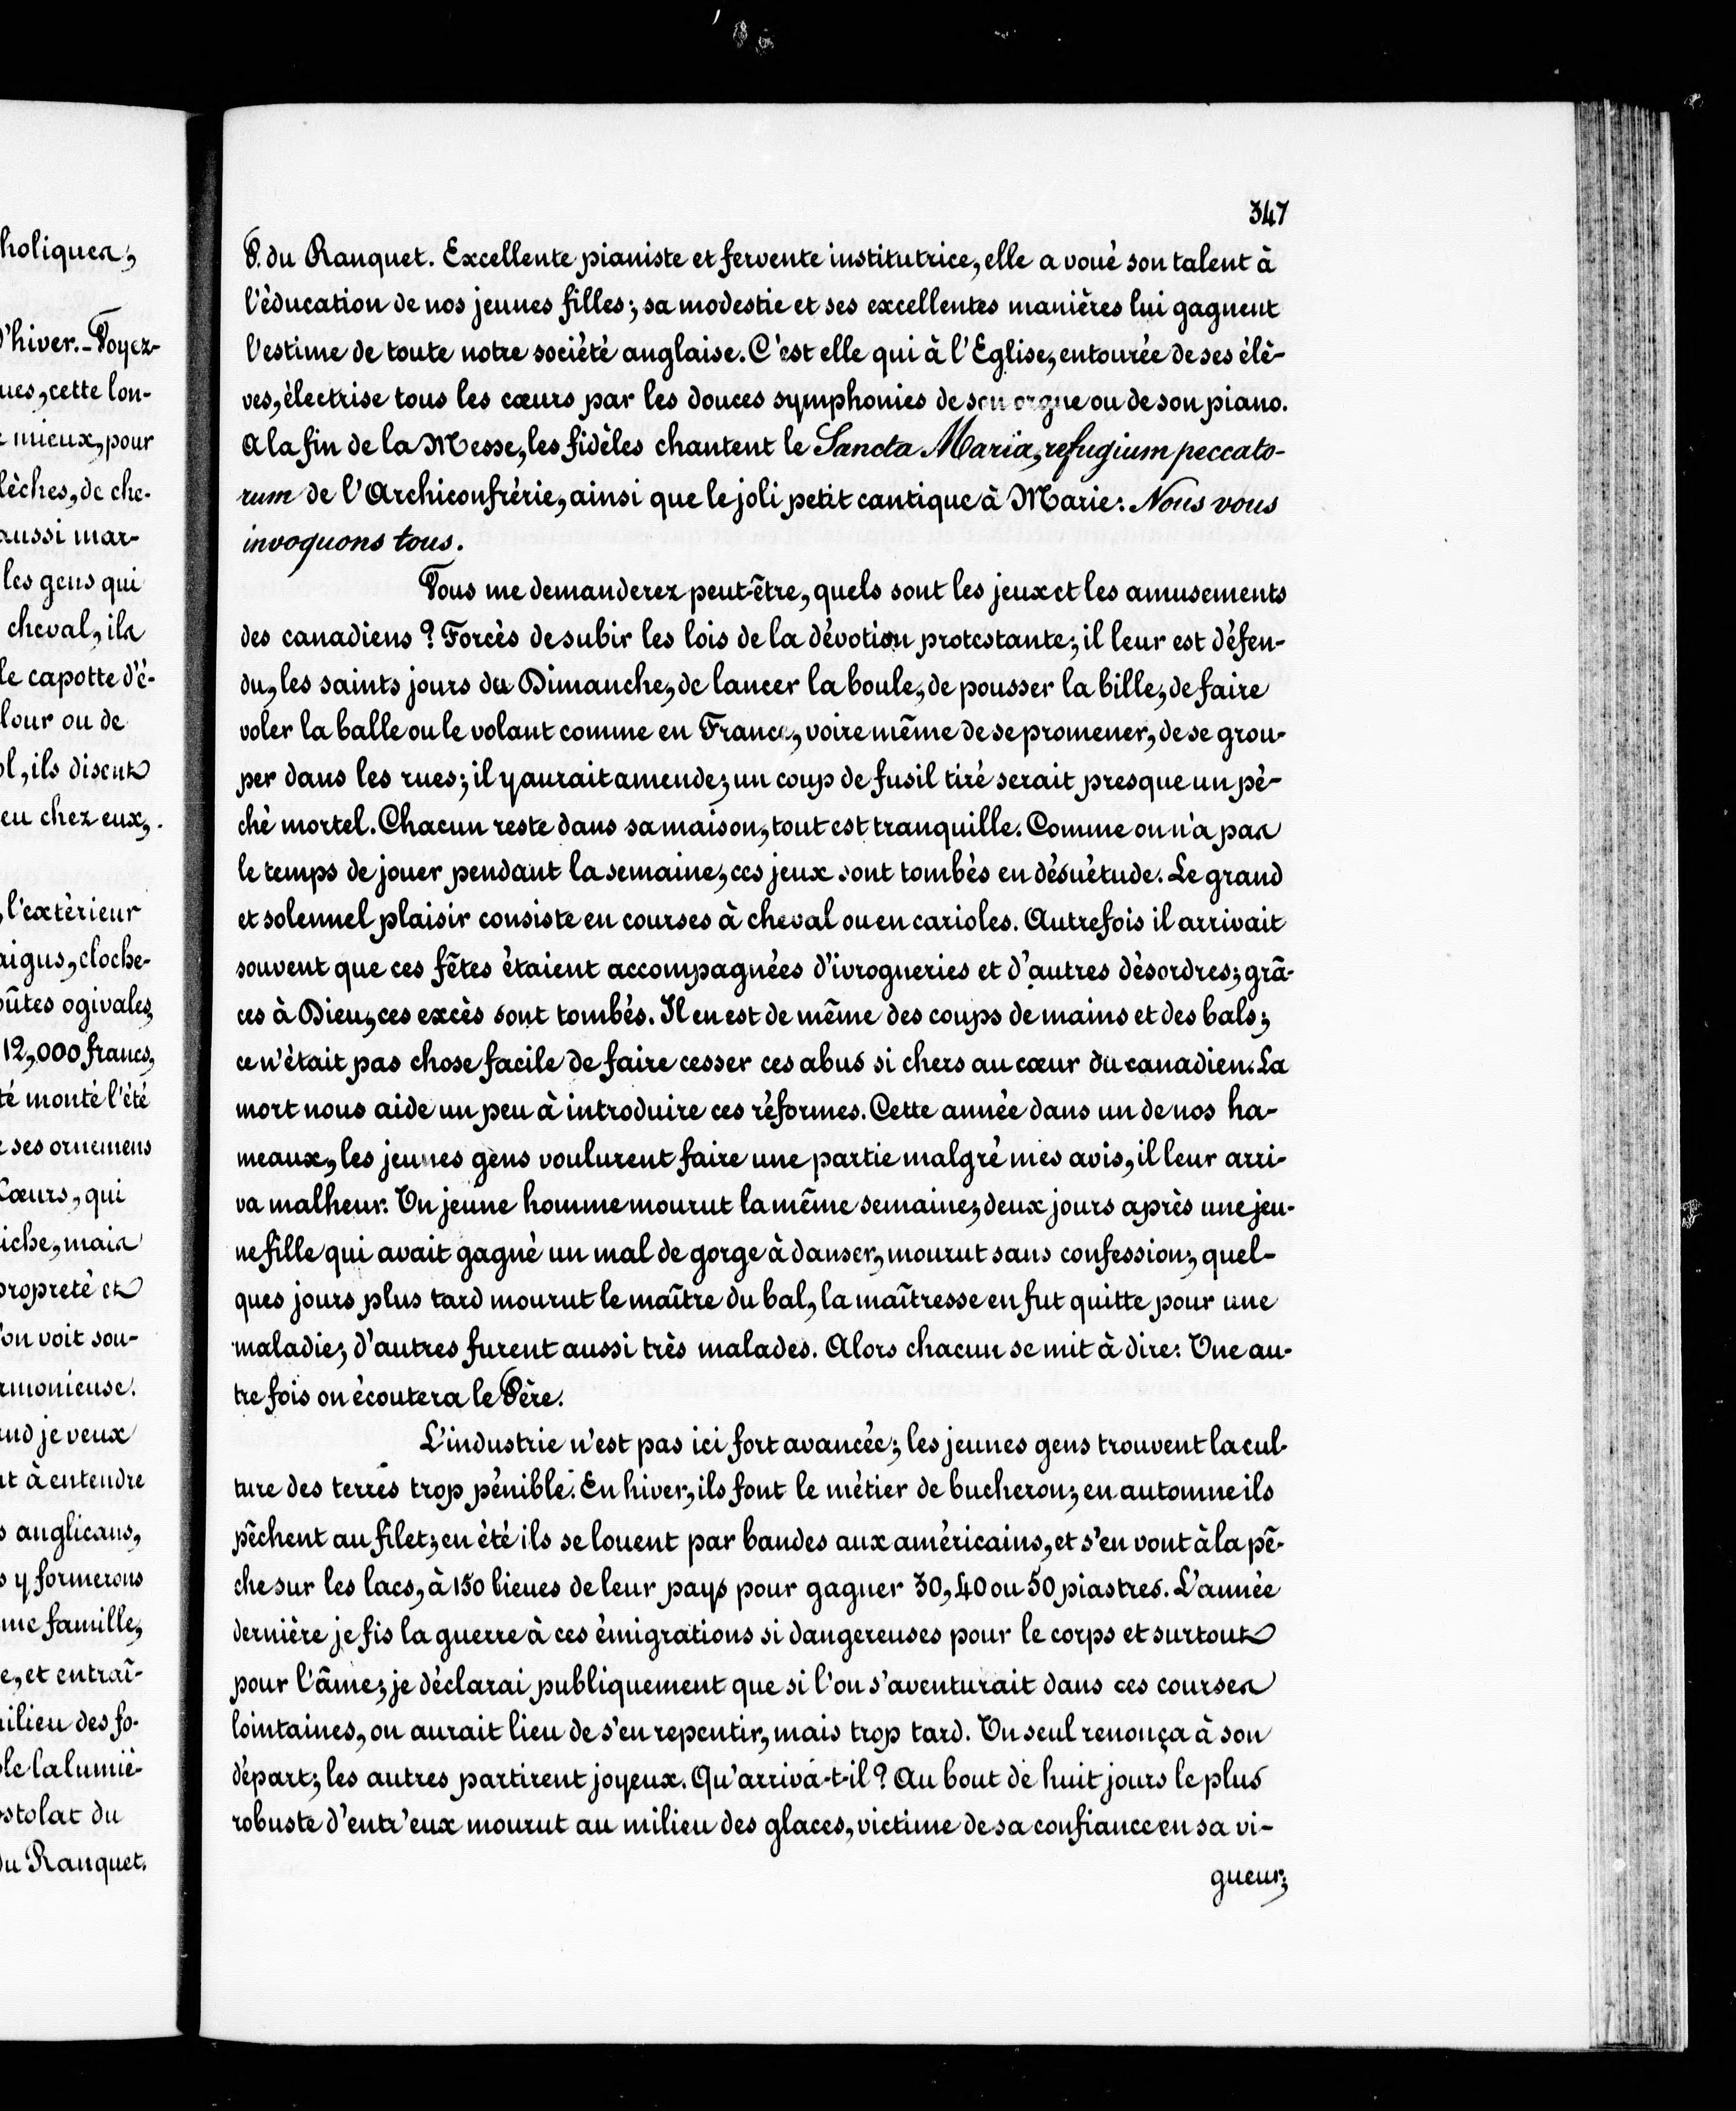 holiques;
d'hiver.-Voyez-
ues, cette lon-
e mieux, pour
lèches, de che-
aussi mar-
les gens qui
cheval, ils
le capotte d'é-
lour ou de
ol, ils disent
eu chez eux,.
, l'extérieur
aigus, cloche-
oûtes ogivales,
12,000 francs,
té monté l'été
e ses ornemens
Cœurs, qui
iche, mais
propreté et
'on voit sou-
rmonieuse.
and je veux
nt à entendre
s anglicans,
s y formerons
me famille,
e, et entraî-
ilieu des fo-
ble la lumiè-
ostolat du
du Ranquet.
347
P. du Ranquet. Excellente pianiste et fervente institutrice, elle a voué son talent à
l'éducation de nos jeunes filles; sa modestie et ses excellentes manières lui gagnent
l'estime de toute notre société anglaise. C'est elle qui à l'Eglise, entourée de ses élè-
ves, électrise tous les cœurs par les douces symphonies de son orgue ou de son piano.
A la fin de la Messe, les fidèles chantent le Sancta Maria, refugium peccato-
rum de l'Archiconfrérie, ainsi que le joli petit cantique à Marie: Nous vous
invoquons tous.
Vous me demanderez peut-être, quels sont les jeux et les amusements
des canadiens? Forcés de subir les lois de la dévotion protestante; il leur est défen-
du, les saints jours du Dimanche, de lancer la boule, de pousser la bille, de faire
voler la balle ou le volant comme en France, voire même de se promener, de se grou-
per dans les rues; il y aurait amende; un coup de fusil tiré serait presque un pé-
ché mortel. Chacun reste dans sa maison, tout est tranquille. Comme on n'a pas
le temps de jouer pendant la semaine, ces jeux sont tombés en désuétude. Le grand
et solennel plaisir consiste en courses à cheval ou en carioles. Autrefois il arrivait
souvent que ces fêtes étaient accompagnées d'ivrogneries et d'autres désordres; grâ-
ces à Dieu, ces excès sont tombés. Il en est de même des coups de mains et des bals;
ce n'était pas chose facile de faire cesser ces abus si chers au cœur du canadien. La
mort nous aide un peu à introduire ces réformes. Cette année dans un de nos ha-
meaux, les jeunes gens voulurent faire une partie malgré mes avis, il leur arri-
va malheur. Un jeune homme mourut la même semaine; deux jours après une jeu-
ne fille qui avait gagné un mal de gorge à danser, mourut sans confession; quel-
ques jours plus tard mourut le maître du bal, la maîtresse en fut quitte pour une
maladie; d'autres furent aussi très malades. Alors chacun se mit à dire: Une au-
tre fois on écoutera le Père.
L'industrie n'est pas ici fort avancée; les jeunes gens trouvent la cul-
ture des terres trop pénible. En hiver, ils font le métier de bucheron; en automne ils
pêchent au filet; en été ils se louent par bandes aux américains, et s'en vont à la pê-
che sur les lacs, à 150 lieues de leur pays pour gagner 30, 40 ou 50 piastres. L'année
dernière je fis la guerre à ces émigrations si dangereuses pour le corps et surtout
pour l'âme; je déclarai publiquement que si l'on s'aventurait dans ces courses
lointaines, on aurait lieu de s'en repentir, mais trop tard. Un seul renonça à son
départ; les autres partirent joyeux. Qu'arriva-t-il? Au bout de huit jours le plus
robuste d'entr'eux mourut au milieu des glaces, victime de sa confiance en sa vi-
gueur;